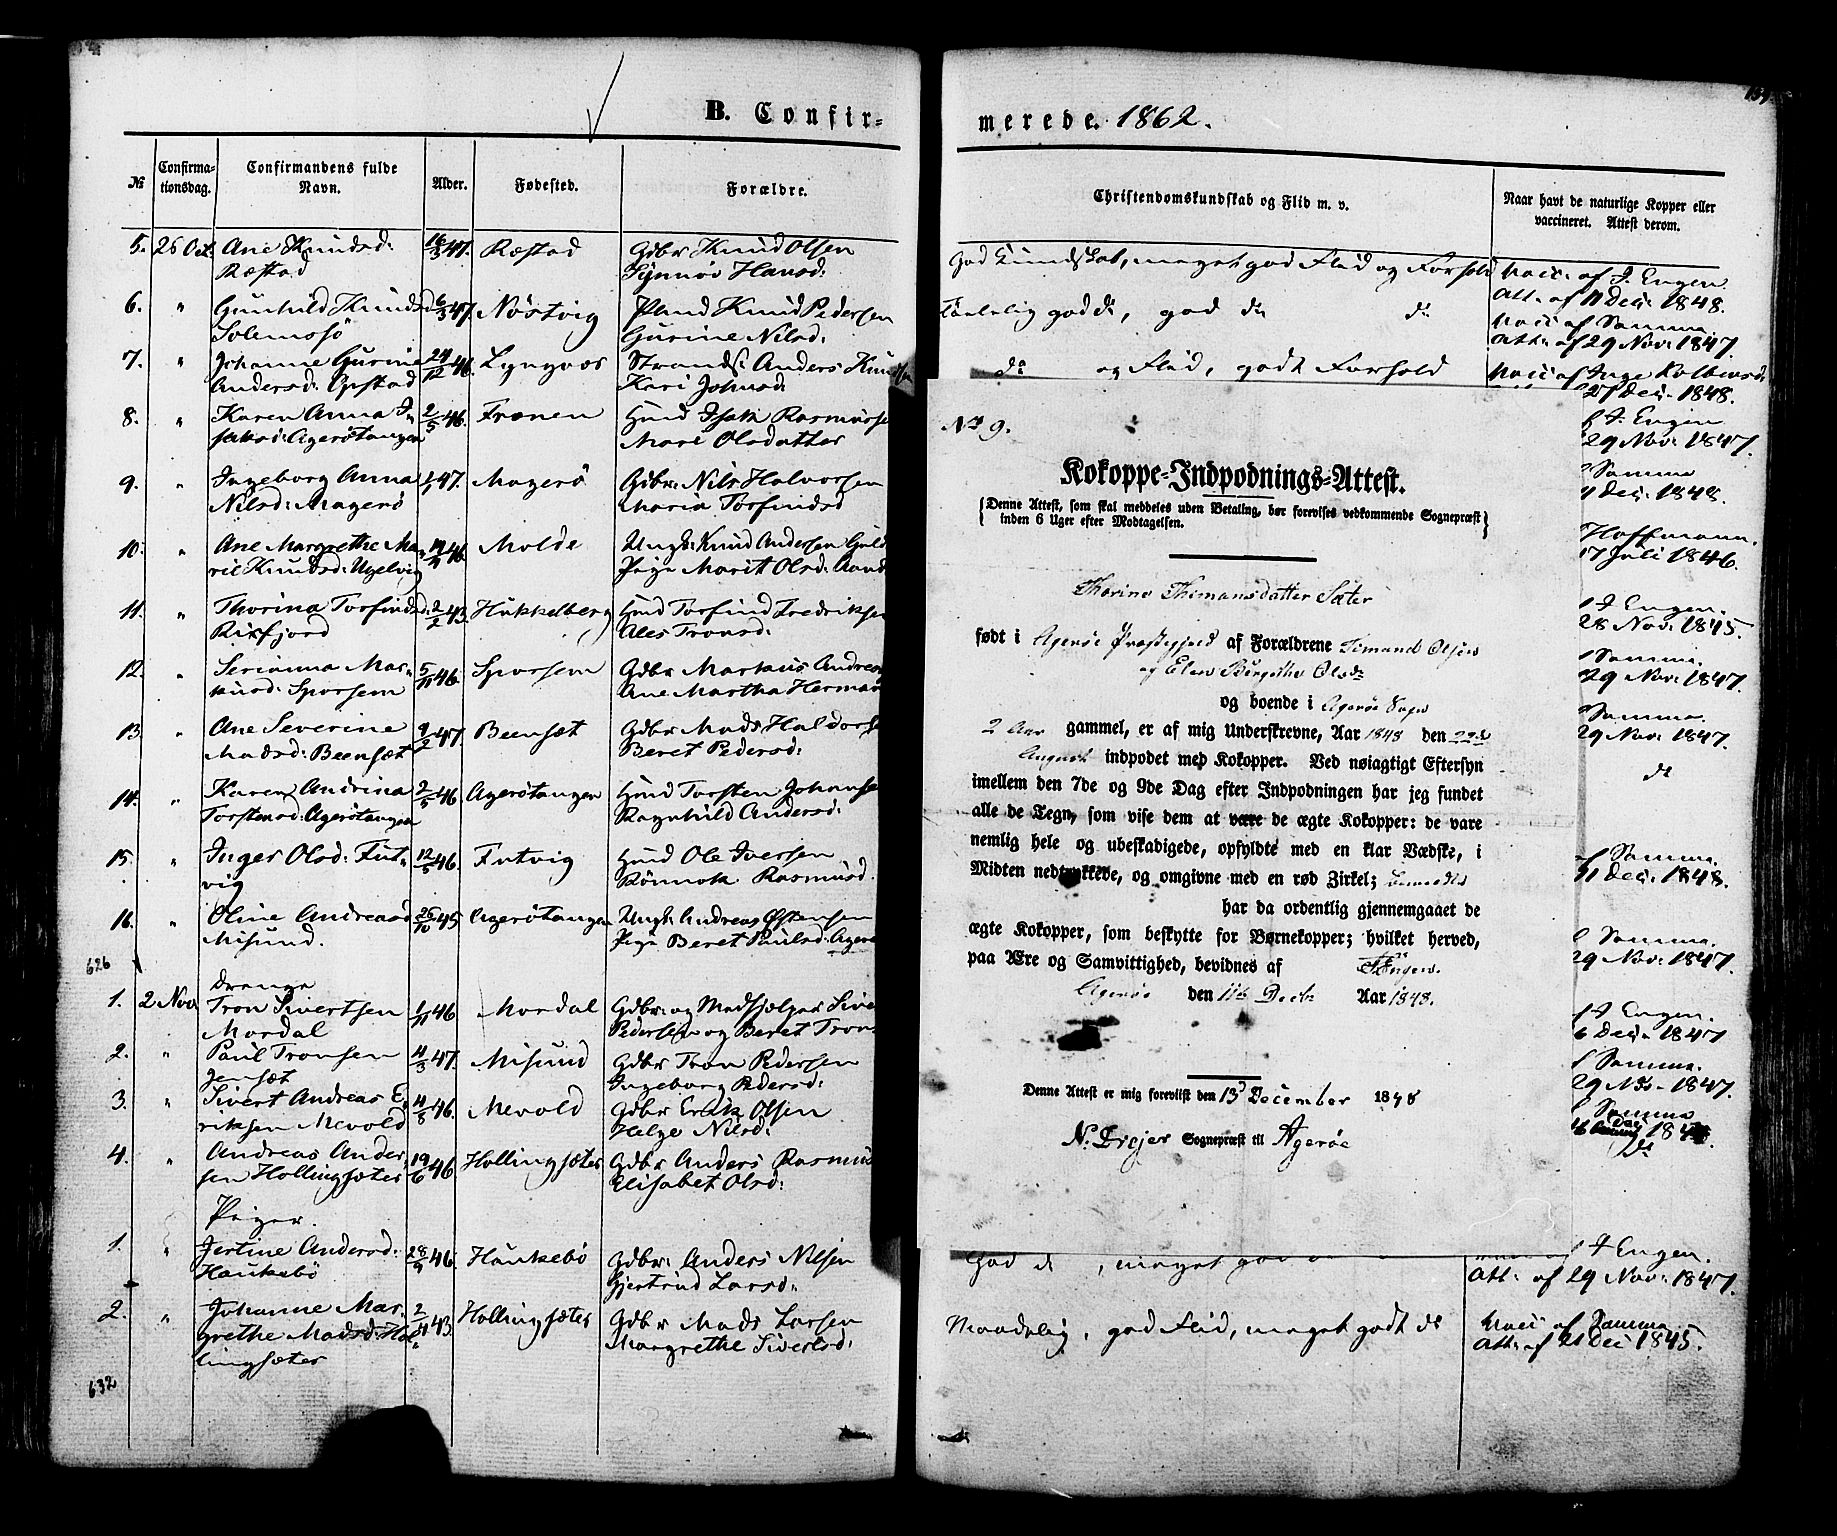 B. Confir-
№
Confirma-
tionsdag.
Confirmandens fulde
Navn.
Alder.
Fødested.
Forældre.
5. 26 Oct. Ane Knudsd: 16/3 47. Ræstad Gdbr Knud Olsen
Ræstad Synnøv Hansd:
6. " Gunhild Knudsd 6/3 47. Nöstvig Pladsmd Knud Pedersen
Solemsö Gurine Nilsd:
7. " Johanne Gurine 24/12 46. Lyngnes Strands: Anders Knudsen
Andersd: Opstad Kari Johnsd:
8. " Karen Anna I- 2/5 46. Frænen Hmd Isak Rasmusse
saksd: Agerötangen Mari Olsdatter
9. " Ingeborg Anna 47. Magerö Gdbr: Nils Halvorsen
Nilsd: Magerö Maria Torfindsd
10. " Ane Margrethe Ma- 46. Molde Ungk: Knud Andersen
rie Knudsd: Ugelvig Pige Marit Olsd:
11. " Thorina Torfindsd: 2/2 43. Hukkelberg Hmd Torfind Fredriksen
Rirfjord Ales Tronsd:
12. " Serianna Mar- 5/11 46. Sporsem Gdbr Markus Andreas
kusd: Sporsem Ane Martha Herman
13. " Ane Severine 9/2 47. Beensæt Gdbr Mads Haldors
Madsd: Beensæt Beret Pedersd:
14. " Karen Andrina 2/5 46 Agerötangen Hmd Torsten Johanse
Torstensd: Agerötangen Ragnhild Andersd:
15. " Inger Olsd: Fut- 12/5 46. Futvig Hmd Ole Iversen
vig Rönnok Rasmusd.
16. " Oline Andreasd 26/10 45 Agerötangen Ungk: Andreas Østensen
Misund. Pige Beret Paulsd: Ager
626
Drenge
1. 2 Nov Tron Sivertsen 1/11 46 Mordal Gdbr: og Medhjelper Sive
Mordal Pedersen og Beret Tron
2. " Paul Tronsen 4/3 47. Misund Gdbr Tron Pedersen
Jensæt Ingeborg Pedersd:
3. " Sivert Andreas E- 4/8 46. Mevold Gdbr Erik Olsen
riksen Mevold Helge Nilsd:
4. " Andreas Ander- 19/6 46. Hollingsæter Gdbr Anders Rasmus
sen Hollingsæter Elisabet Olsd:
Piger.
1. " Jertine Andersd: 28/9 46. Haukebö Gdbr: Anders Nilsen
Haukebö Gjertrud Larsd:
2. " Johanne Mar- 2/11 43. Hollingsæter Gdbr Mads Larsen
grethe Madsd: Hol- Margrethe Sivertsd:
lingsæter
632
merede. 1862.
Christendomskundskab og Flid m. v.
Naar havt de naturlige Kopper eller
vaccineret. Attest derom.
God Kundskab, meget god Flid og Forhold Vacc: af J. Engen
Att: af 11 Dec: 1848.
Taalelig god do, god do do Vacc: af Samme
Att: af 29 Nov: 1847.
do og Flid, godt Forhold Vacc: af Inge Kolbensd:
27 Dec: 1848.
J. Engen
29 Nov: 1847.
Samme
Dec: 1848.
Hoffmann.
17 Juli 1846.
J. Engen.
28 Nov: 1845.
Samme.
29 Nov: 1847.
Samme.
29 Nov: 1847.
do
Samme.
11 Dec: 1848.
Samme.
29 Nov: 1847.
J. Engen.
6 Dec: 1847
Samme.
29 Nov. 1847.
Samme
do
No 9.
Kokoppe-Indpodnings-Attest.
(Denne Attest, som skal meddeles uden Betaling, bør forevises vedkommende Sognepræst
inden 6 Uger efter Modtagelsen.)
Thorine Themansdatter Sæter
født i Agerøe Præstegjeld af Forældrene Timand Olsen
og Elen Birgithe Olsdr
og boende i Agerøe Sogn
2 Aar gammel, er af mig Underskrevne, Aar 1848 den 22de
August indpodet med Kokopper. Ved nøiagtigt Eftersyn
imellem den 7de og 9de Dag efter Indpodningen har jeg fundet
alle de Tegn, som vise dem at være de ægte Kokopper: de vare
nemlig hele og ubeskadigede, opfyldte med en klar Vædske, i
Midten nedtrykkede, og omgivne med en rød Zirkel;
har da ordentlig gjennemgaaet de
ægte Kokopper, som beskytte for Børnekopper; hvilket herved,
paa Ære og Samvittighed, bevidnes af J. Engen.
Agerøe den 11te Decbr Aar 1848.
Denne Attest er mig forevist den 13d December 1848
N. Drejer Sognepræst til Agerøe
God do, meget god J. Engen.
Att: af 29 Nov: 1847.
Maadelig, god Flid, meget godt do Vacc: af Samme.
Att: af 21 Dec: 1845.